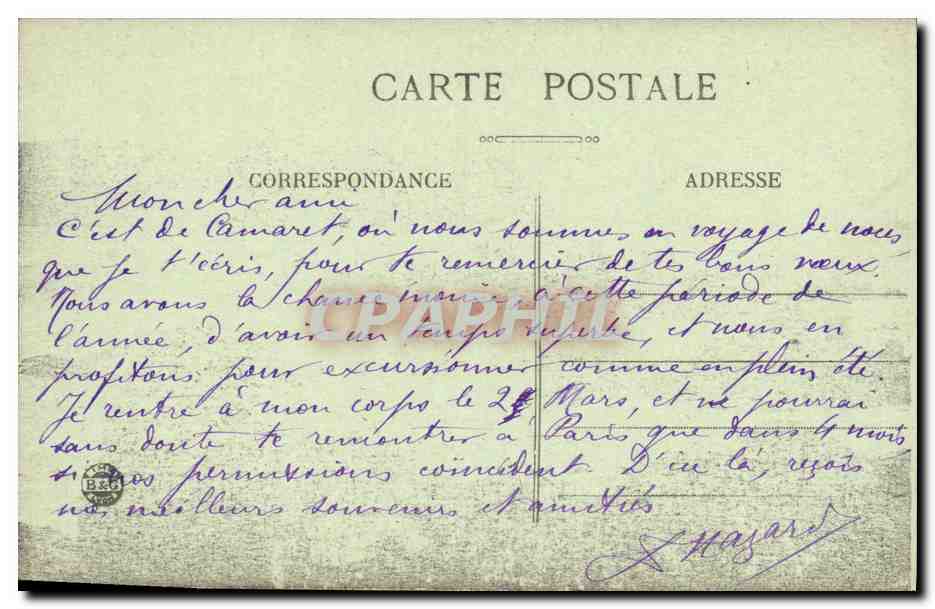 CARTE POSTALE
CORRESPONDANCE
ADRESSE
Mon cher ami
C'est de Camaret, où nous sommes en voyage de noces
que je t'écris, pour te remercier de tes bons vœux.
Nous avons la chance inouie, à cette période de
l'année, d'avoir un temps superbe, et nous en
profitons pour excursionner comme en plein été.
Je rentre à mon corps le 2 Mars, et ne pourrai
sans doute te remontrer à Paris que dans 4 mois
si nos permissions coincident. D'ici là, reçois
nos meilleurs souvenirs et amitiés.
Hazard
B&G
CPAPHIL